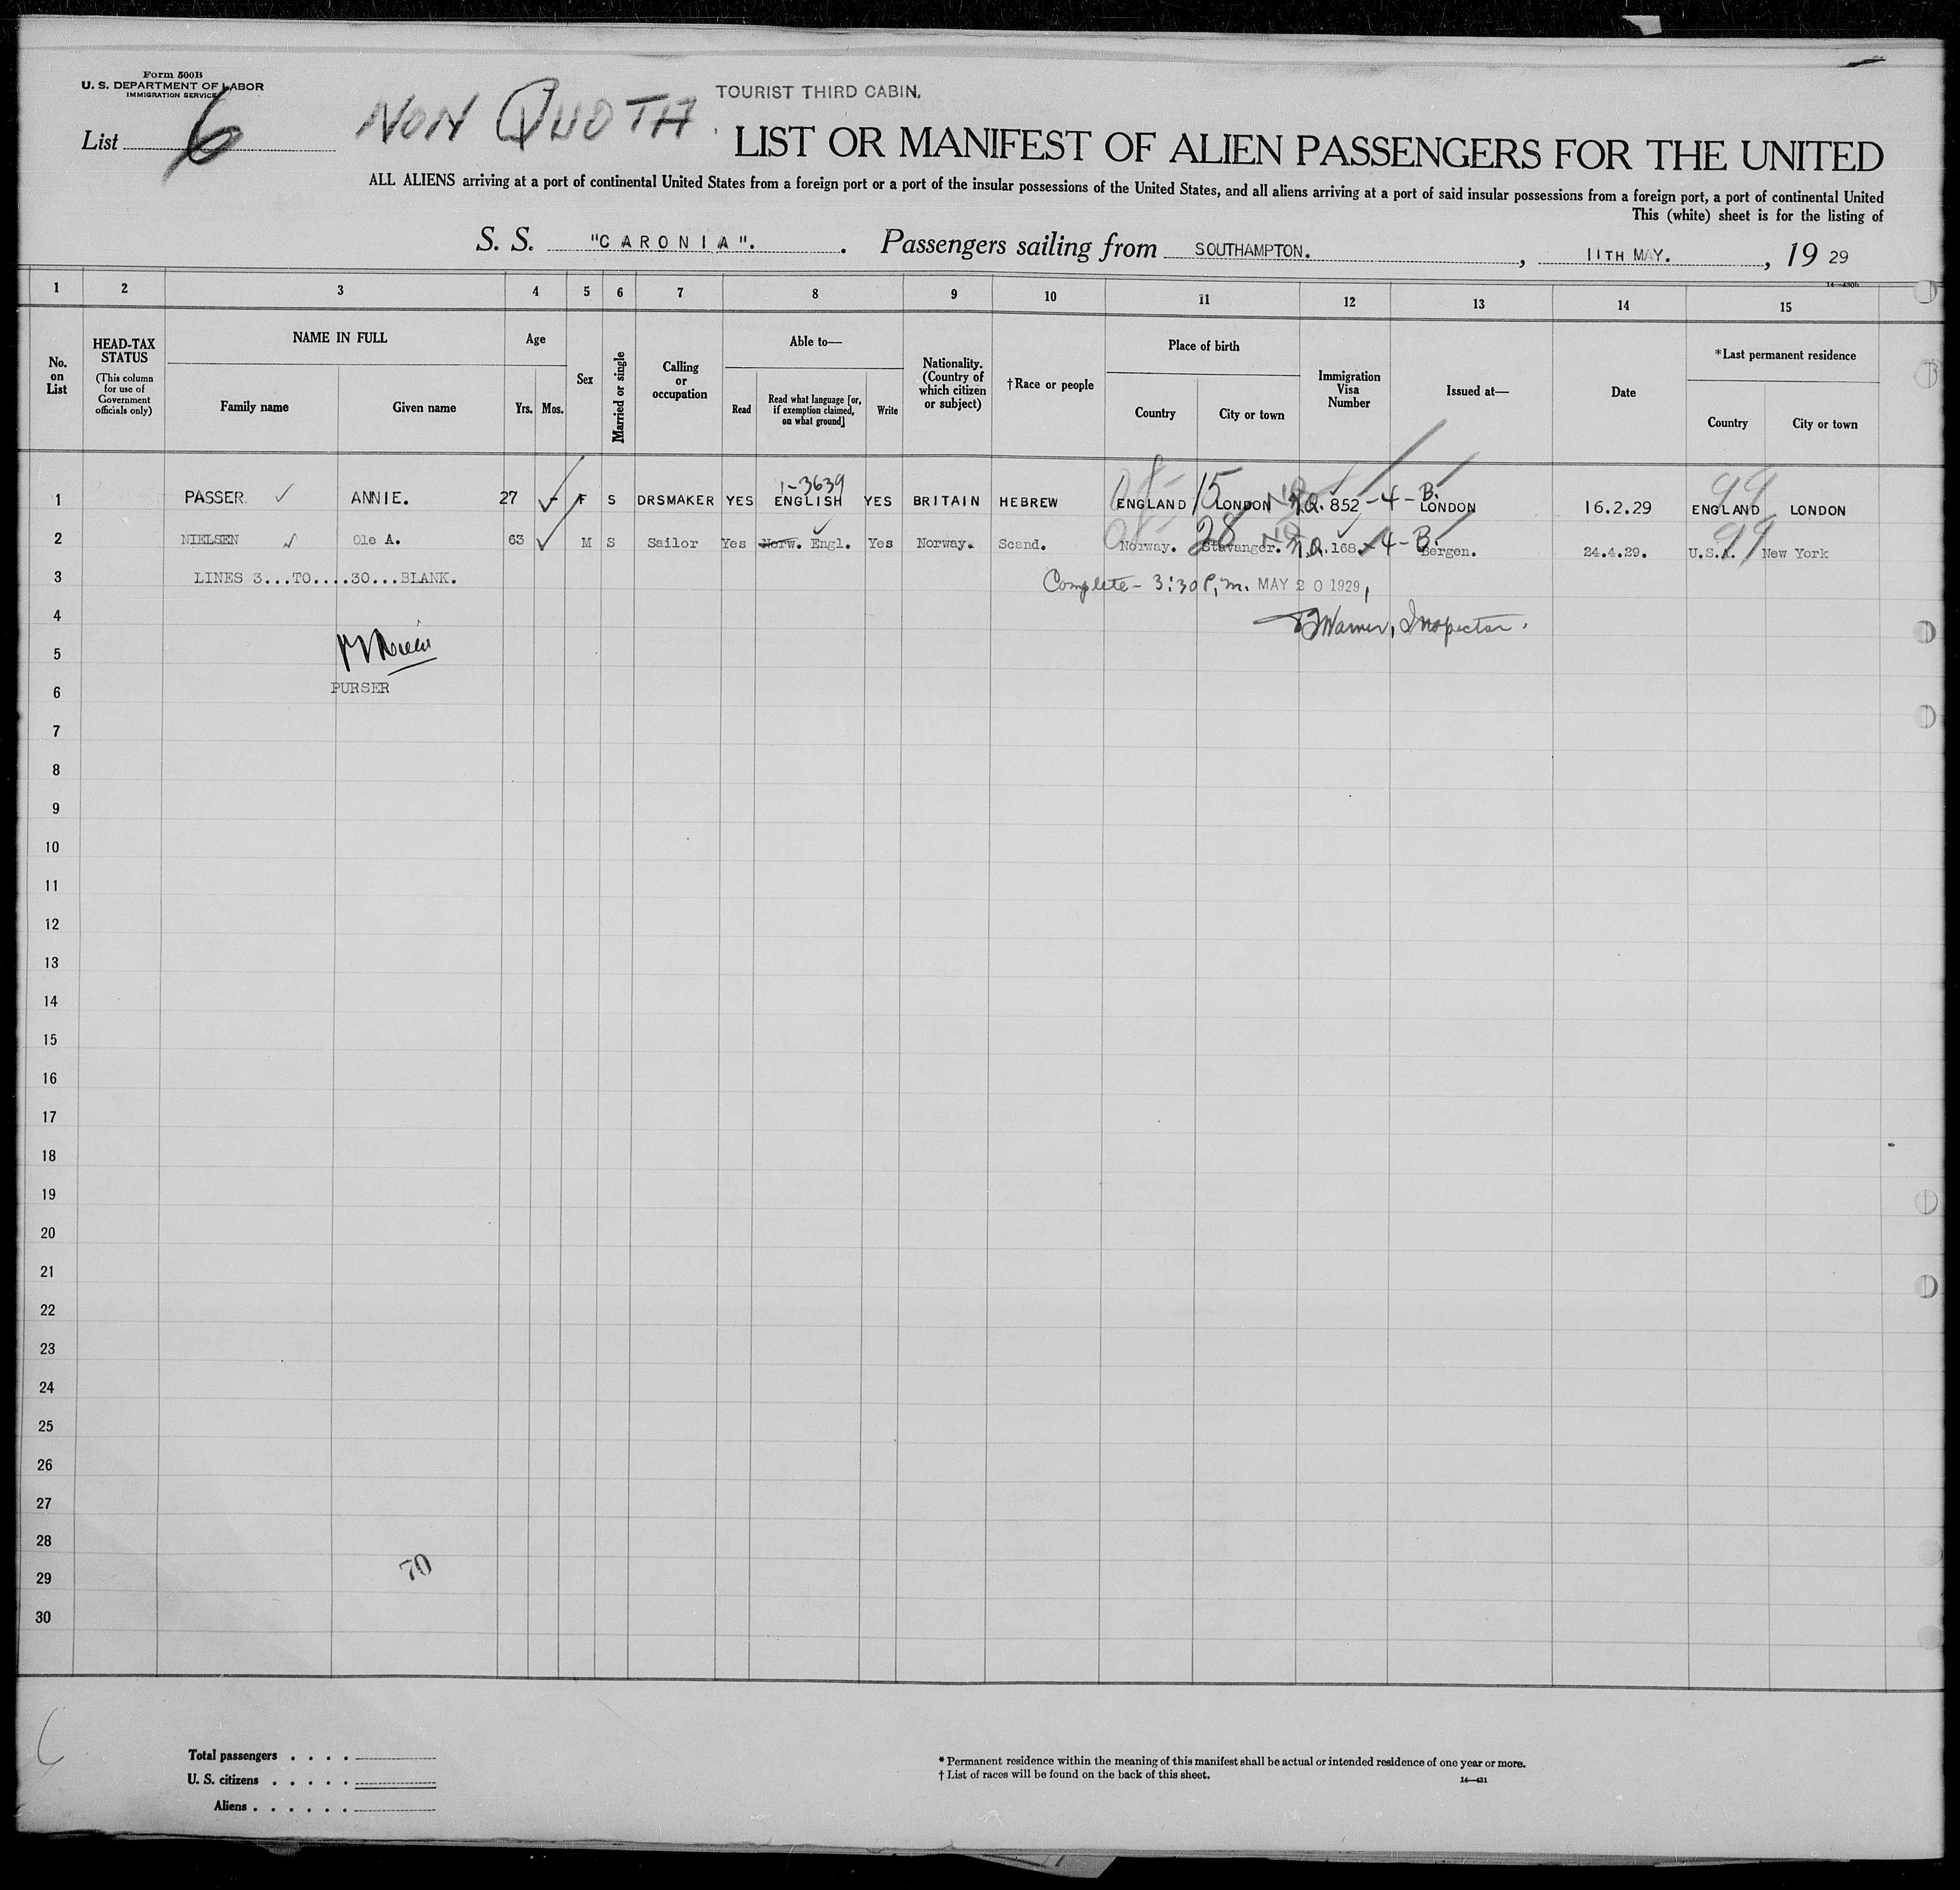 Form 500B
U. S. DEPARTMENT OF LABOR
IMMIGRATION SERVICE
List 6
NON QUOTA
TOURIST THIRD CABIN.
LIST OR MANIFEST OF ALIEN PASSENGERS FOR THE UNITED
ALL ALIENS arriving at a port of continental United States from a foreign port or a port of the insular possessions of the United States, and all aliens arriving at a port of said insular possessions from a foreign port, a port of continental United
This (white) sheet is for the listing of
S. S. "CARONIA". . Passengers sailing from SOUTHAMPTON. , 11TH MAY. , 19 29
14—430b
1 2 3 4 5 6 7 8 9 10 11 12 13 14 15
No. on List
HEAD-TAX STATUS
(This column for use of Government officials only)
NAME IN FULL
Family name Given name
Age
Yrs. Mos.
Sex
Married or single
Calling or occupation
Able to—
Read
Read what language [or, if exemption claimed, on what ground]
Write
Nationality. (Country of which citizen or subject)
†Race or people
Place of birth
Country City or town
Immigration Visa Number
Issued at—
Date
*Last permanent residence
Country City or town
1-3639
1 PASSER ANNIE. 27 - F S DRSMAKER YES ENGLISH YES BRITAIN HEBREW ENGLAND 15 LONDON N.Q. 852 -4-B. LONDON 16.2.29 99 ENGLAND LONDON
2 NIELSEN Ole A. 63 M S Sailor Yes Norw. Engl. Yes Norway. Scand. Norway. 28 Stavanger. N.Q. 168 -4-B. Bergen. 24.4.29. 99 U.S.A. New York
3 LINES 3...TO....30...BLANK. Complete - 3:30 P.m. MAY 20 1929,
4 Warner, Inspector.
5
6 PURSER
7
8
9
10
11
12
13
14
15
16
17
18
19
20
21
22
23
24
25
26
27
28
29 70
30
Total passengers . . . .
U. S. citizens . . . . .
Aliens . . . . . .
* Permanent residence within the meaning of this manifest shall be actual or intended residence of one year or more.
† List of races will be found on the back of this sheet.
14—431